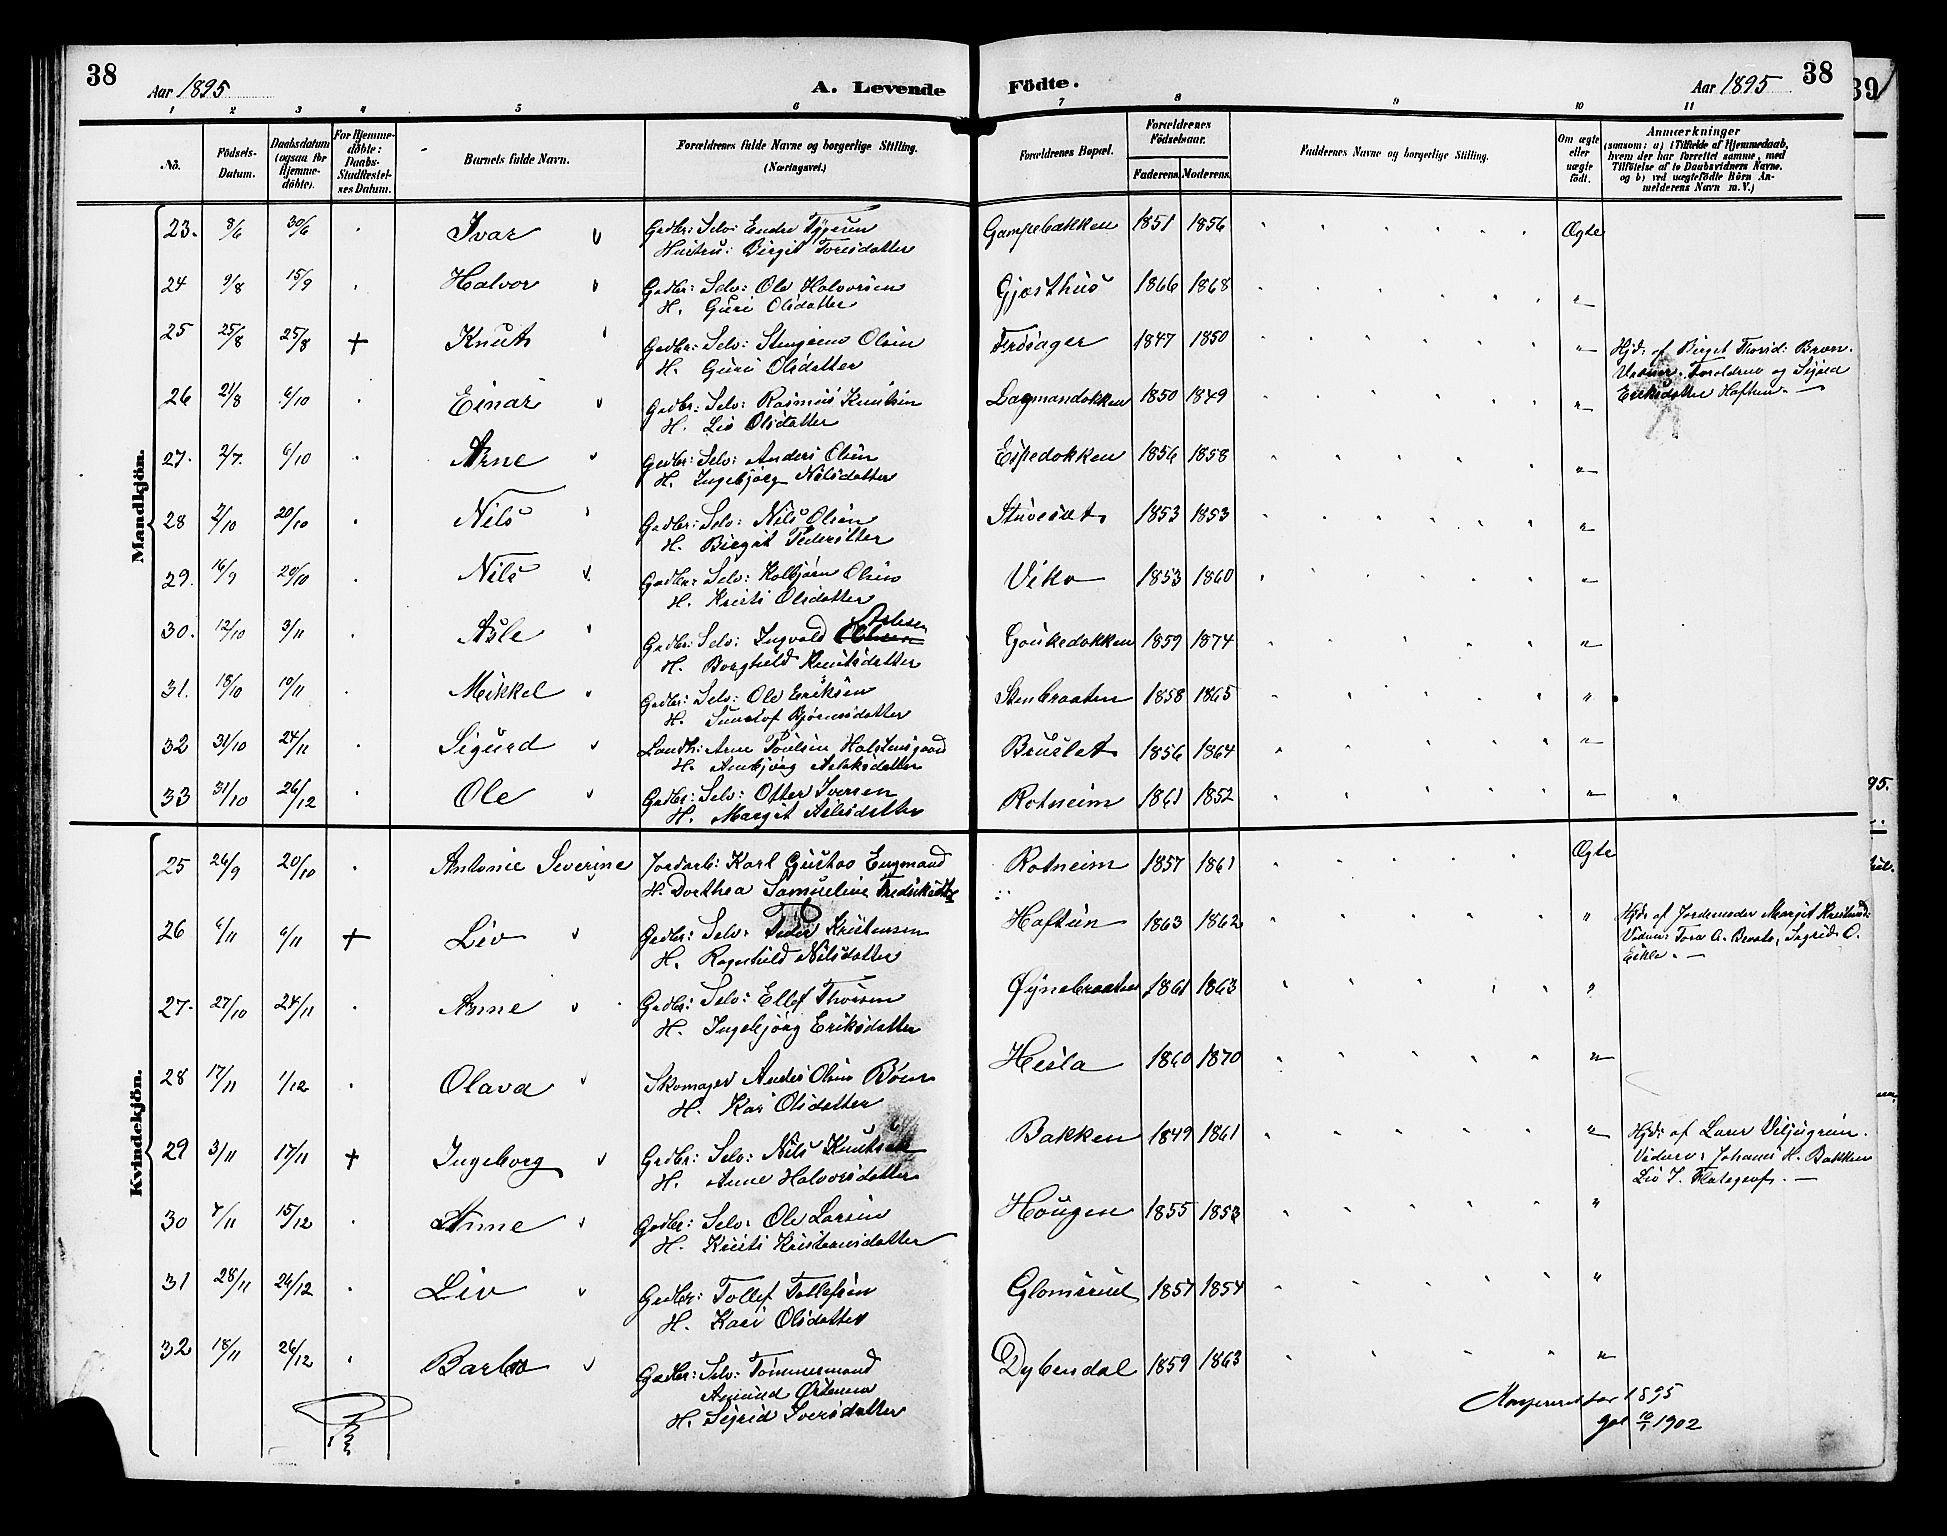 38
Aar 1895
A. Levende
Födte.
Aar 1895
38
39
1 2 3 4 5 6 7 8 9 10 11
No.
Födsels-Datum.
Daabsdatum (ogsaa for Hjemmedöbte).
For Hjemmedöbte: Daabs-Stadfæstelses Datum.
Barnets fulde Navn.
Forældrenes fulde Navne og borgerlige Stilling. (Næringsvei.)
Forældrenes Bopæl.
Forældrenes Födselsaar.
Faderens. Moderens.
Faddernes Navne og borgerlige Stilling.
Om ægte eller uægte födt.
Anmærkninger
(saasom: a) i Tilfælde af Hjemmedaab, hvem der har forrettet samme, med Tilföielse af to Daabsvidners Navne, og b) ved uægtefödte Börn Anmelderens Navn m. V.)
Mandkjön.
23. 8/6 30/6 Ivar Gadbr: Selv: Endre
Hustru: Birgit Toresdatter Gampebakken 1851 1856 Ægte
24 9/8 15/9 Halvor Gadbr: Selv: Ole Halvorsen
H. Guri Olsdatter Gjæsthus 1866 1868 "
25 25/8 25/8 + Knut Gadbr: Selv: Olsen
H. Guri Olsdatter Frösager 1847 1850 "
Hjd: af Birget Thorsd: Bræn.
Vidner: Forældrene og Sigrid
Eriksdatter Haftun. —
26 21/8 6/10 Einar Gadbr: Selv: Rasmus Knutsen
H. Liv Olsdatter Lagmandokken 1850 1849 "
27. 2/7. 6/10 Arne Gadbr: Selv: Anders Olsen
H. Ingebjörg Nilsdatter Espedokken 1856 1858 "
28 2/10 20/10 Nils Gadbr: Selv: Nils Olsen
H. Birgit Pedersdtter 1853 1853 "
29. 16/9 20/10 Nils Gadbr: Selv: Kolbjörn Olsen
H. Kristi Olsdatter Viko 1853 1860 "
30. 12/10 3/11 Asle Gadbr: Selv: Ingvald Aslesen
H. Borghild Knutsdatter Goukedokken 1859 1874 "
31. 18/10 10/11 Mikkel Gadbr: Selv: Ole Eriksen
H. Bjørnsdatter Stenbraaten 1858 1865 "
32 31/10 24/11 Sigurd Landh: Arne Poulsen Halstensgaard
H. Ambjörg Aslaksdatter Bruslet 1856 1864 "
33 31/10 26/12 Ole Gadbr: Selv: Otter Iversen
H. Margit Aslesdatter Rotneim 1861 1852 "
Kvindekjön.
25 26/9 20/10 Antonie Severine Jordarb: Karl Gustav Engmand
H. Dorthea Samueline Fredriksdtt Rotneim 1857 1861 Ægte
26 6/11 6/11 + Liv Gadbr: Selv: Peder Kristensen
H. Ragnhild Nilsdatter Haftun 1863 1862 "
Hjd: af Jordemoder Margit Knutsd:
Vidner: Tora A. Sagrid O.
27. 27/10 24/11 Anne Gadbr: Selv: Ellef Thorsen
H. Ingebjörg Eriksdatter Øynebraaten 1861 1863 "
28 17/11 1/12 Olava Skomager Anders Olsen Böen
H. Kari Olsdatter Hesla 1860 1870 "
29 3/11 17/11 + Ingeborg Gadbr: Selv: Nils Knutsen
H. Anne Halvorsdatter Bakken 1849 1861 "
Hjd: af Lars Viljugrein.
Vidner: Johanes H. Bakken
Liv T. —
30 7/11 15/12 Anne Gadbr: Selv: Ole Larsen
H. Kristi Kristiansdatter Hougen 1855 1853 "
31 28/11 26/12 Liv Gadbr: Tollef Tollefsen
H. Kari Olsdatter Glomsrud 1857 1854 "
32 18/11 26/12 Barbro Gadbr: Selv: Tömmermand
Amund
H. Sigrid Iversdatter Dybendal 1859 1863 "
1895
Gol 10/1 1902
95.